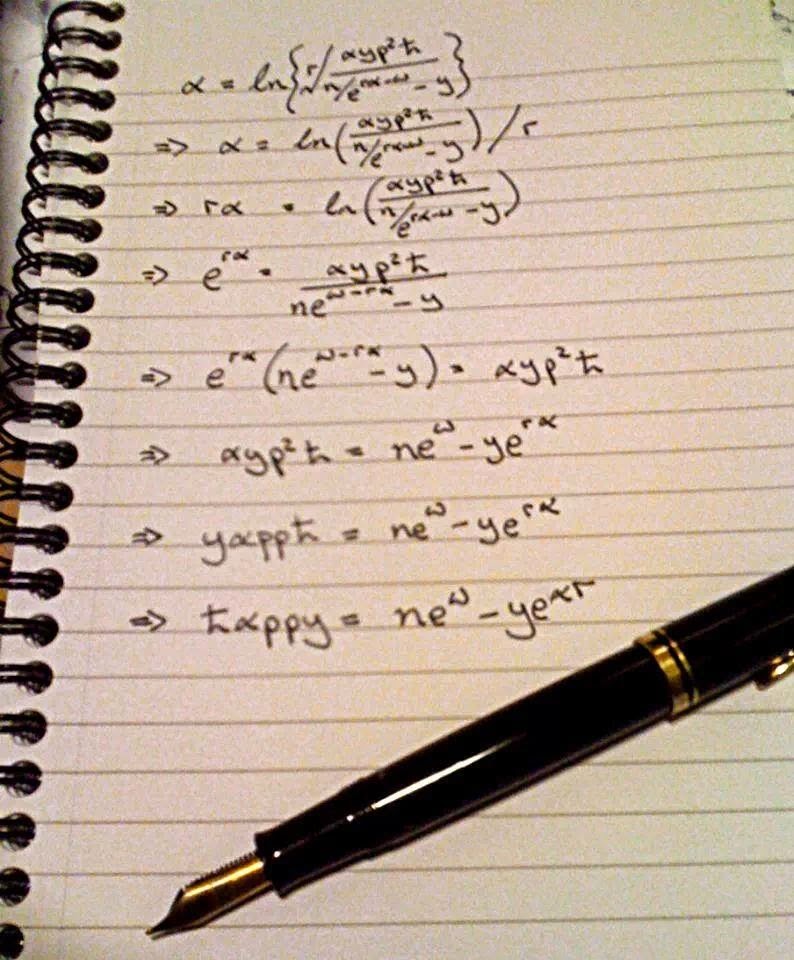 α = ln{ʳ√(αyp²ħ / (n/e^(rα-ω) - y))}
=> α = ln(αyp²ħ / (n/e^(rα-ω) - y))/r
=> rα = ln(αyp²ħ / (n/e^(rα-ω) - y))
=> e^(rα) = αyp²ħ / (ne^(ω-rα) - y)
=> e^(rα)(ne^(ω-rα) - y) = αyp²ħ
=> αyp²ħ = ne^ω - ye^(rα)
=> yαppħ = ne^ω - ye^(rα)
=> ħαppy = ne^ω - ye^(αr)